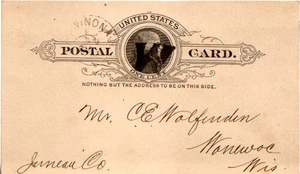 WINONA
UNITED STATES
POSTAL CARD.
ONE CENT
NOTHING BUT THE ADDRESS TO BE ON THIS SIDE.
Mr. C E Wolfenden
Wonewoc
Juneau Co. Wis.